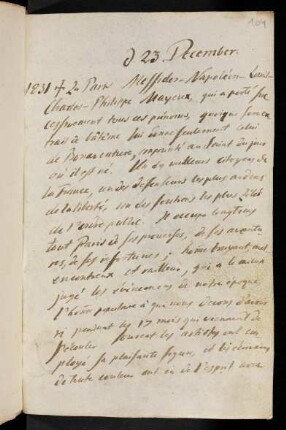 104
d 23. December.
1831 † à Paris Messidor-Napoléon-Louis-
Charles-Philippe Mayeux, qui a porté suc
cessivement tous ces prénoms, quoique son ex
trait de batême lui donne seulement celui
de Bonaventure, emprunté au Saint du jour
où il est né. Un des meilleurs citoyens de
la France, un des défenseurs les plus ardens
de la liberté, un des soutiens les plus zélés
de l'ordre public. Il occupa longtems
tout Paris de ses prouesses, de ses aventu
res, de ses infortunes; homme bruyant, mal
encontreux et railleur, qui a le mieux
jugé les événemens de notre époque
l'homme populaire à que nous devons d'avoir
ri pendant les 17 mois qui viennent de
s'écouler. Souvent les artistes ont em
ployé sa plaisante figure, et les écrivains
de toute couleur ont eu de l'esprit